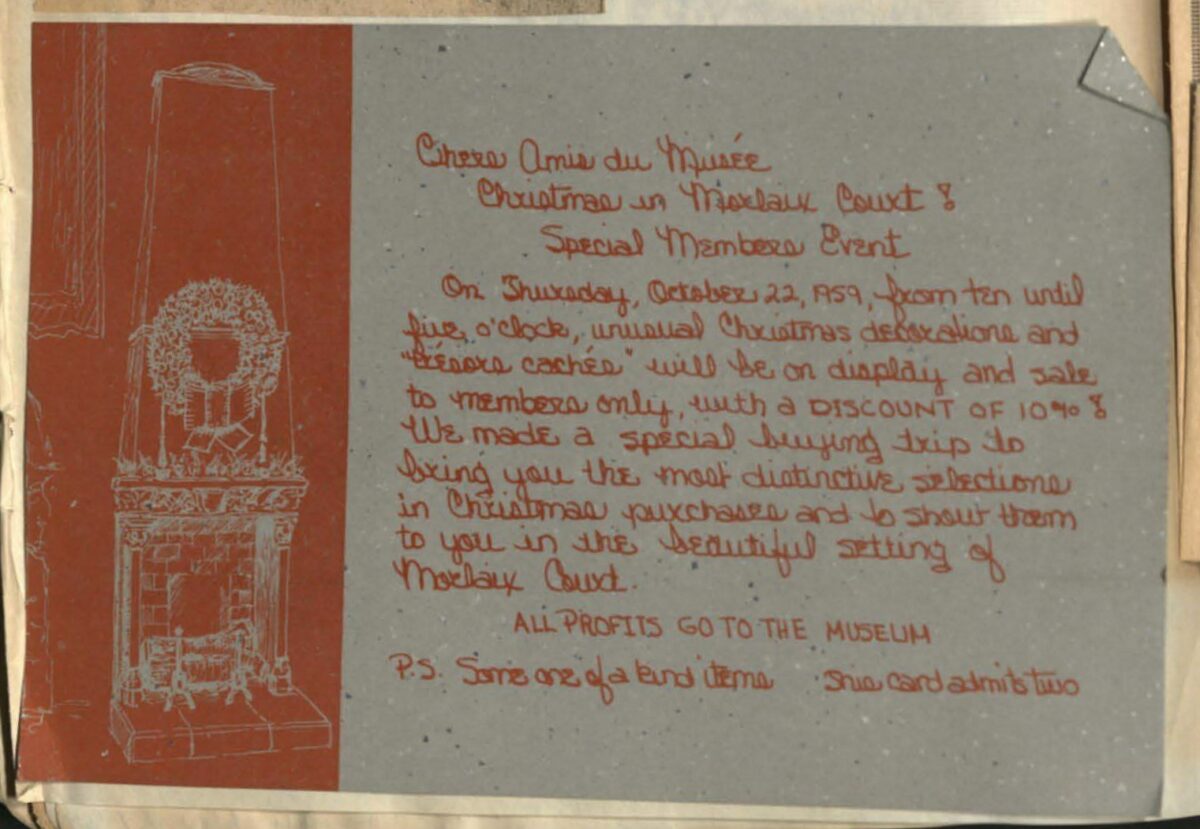 Chers Amis du Musée
Christmas in Morlaix Court!
Special Members Event
On Thursday, October 22, 1959, from ten until
five o'clock, unusual Christmas decorations and
"trésors cachés" will be on display and sale
to members only, with a DISCOUNT OF 10%!
We made a special buying trip to
bring you the most distinctive selections
in Christmas purchases and to show them
to you in the beautiful setting of
Morlaix Court.
ALL PROFITS GO TO THE MUSEUM
P.S. Some one of a kind items This card admits two